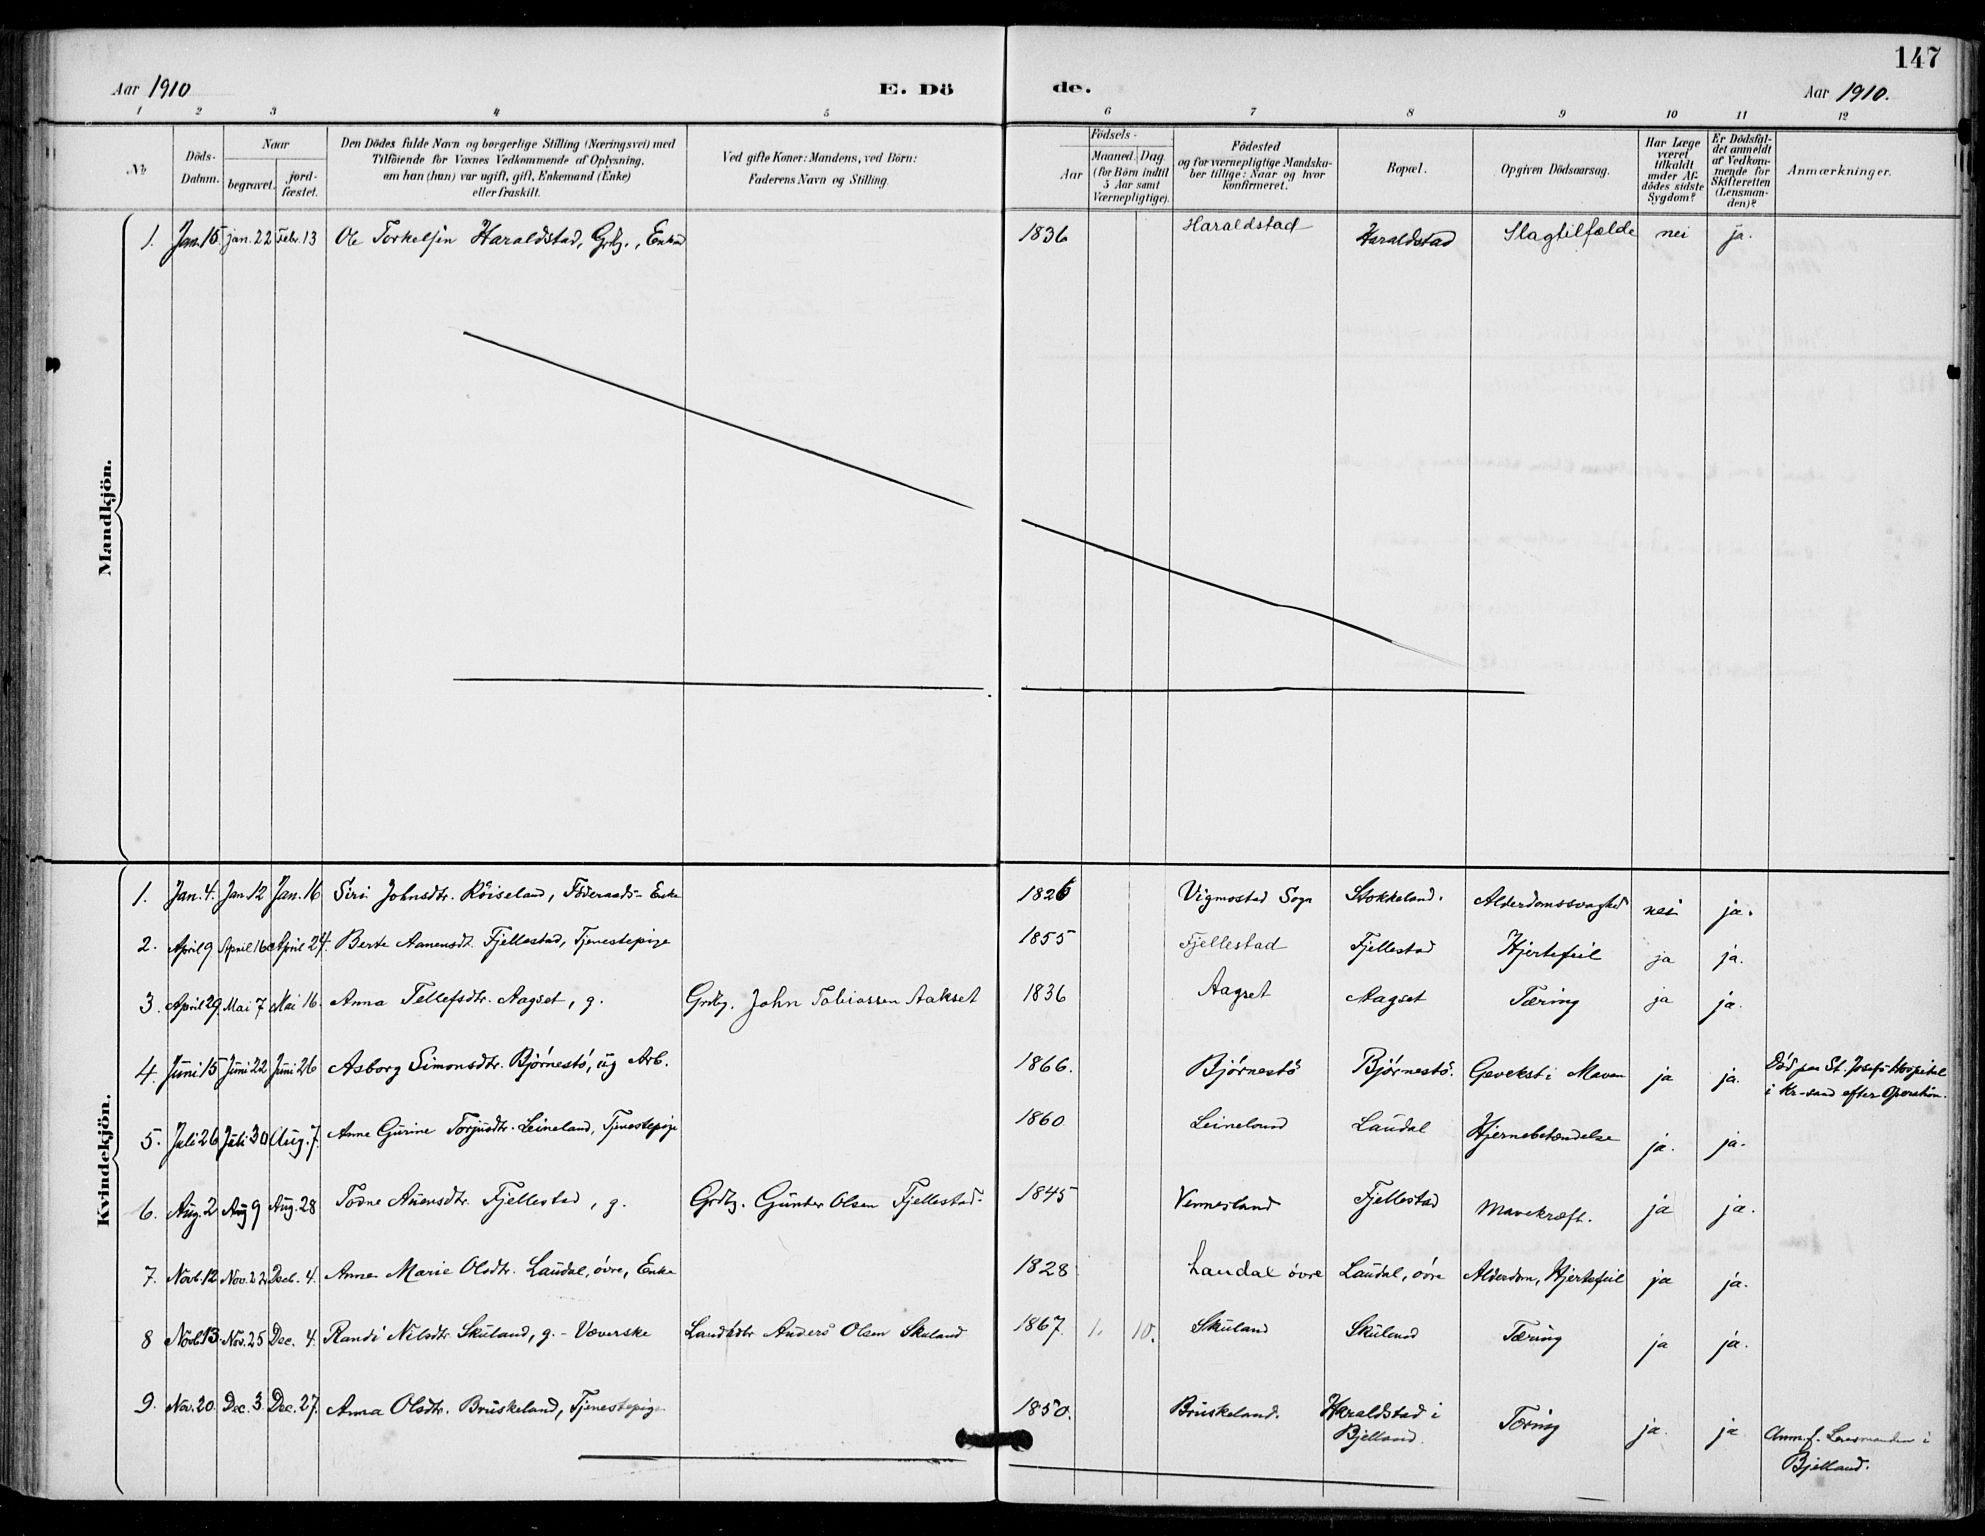 147
Aar 1910 E. Dö de. Aar 1910.
1 2 3 4 5 6 7 8 9 10 11 12
No
Döds-Datum.
Naar
begravet.
jord-fæstet.
Den Dödes fulde Navn og borgerlige Stilling (Næringsvei) med
Tilföiende for Voxnes Vedkommende af Oplysning,
om han (hun) var ugift, gift, Enkemand (Enke)
eller fraskilt.
Ved gifte Koner: Mandens, ved Börn:
Faderens Navn og Stilling.
Födsels-
Aar
Maaned. Dag
(for Börn indtil
5 Aar samt
Værnepligtige).
Födested
og for værnepligtige Mandska-
ber tillige: Naar og hvor
konfirmeret.
Bopæl.
Opgiven Dödsaarsag.
Har Læge
været
tilkaldt
under Af-
dödes sidste
Sygdom?
Er Dödsfal-
det anmeldt
af Vedkom-
mende for
Skifteretten
(Lensman-
den)?
Anmærkninger.
Mandkjön.
1. Jan. 15 jan. 22 Febr. 13 Ole Torkelsen Haraldstad, Grbg., Enkm 1836 Haraldstad Haraldstad Slagtilfælde nei ja.
Kvindekjön.
1. Jan. 4. Jan 12 Jan. 16 Siri Johnsdtr. Röiseland, Föderaads-Enke 1826 Vigmostad Sogn Stokkeland. Alderdomssvaghed nei ja.
2. April 9 April 16 April 24. Berte Aanensdt. Fjellestad, Tjenestepige 1855 Fjellestad Fjellestad Hjertefeil ja ja.
3. April 29. Mai 7 Mai 16. Anna Tellefsdtr. Aagset, g. Grdbg. John Tobiassen Aakset 1836 Aagset Aagset Tæring ja ja.
4. Juni 15 Juni 22 Juni 26 Asborg Simonsdtr. Bjørnestö, ug Arb. 1866. Bjørnestö Bjørnestö. Gevekst i Maven ja ja. Död paa St. Josefs Hospital
i Kr-sand efter Operation.
5. Juli 26 Juli 30 Aug. 7. Anne Gurine Torjusdtr. Leineland, Tjenestepige 1860 Leineland Laudal Hjernebetændelse ja. ja.
6. Aug. 2 Aug 9 Aug. 28 Todne Auensdtr. Fjellestad, g. Grdbg. Gunder Olsen Fjellestad. 1845 Vennesland Fjellestad Mavekræft. ja ja.
7. Novb. 12 Nov. 22 Decb. 4. Anne Marie Olsdtr. Laudal, övre, Enke 1828 Laudal övre Laudal, övre Alderdom, Hjertefeil ja ja.
8 Novb. 13 Nov. 25 Dec. 4. Randi Nilsdtr. Skuland, g. - Væverske Landhdbr Anders Olsen Skuland 1867. 1. 10. Skuland Skuland Tæring ja ja.
9. Nov. 20. Dec. 3 Dec. 27. Anna Olsdtr. Bruskeland, Tjenestepige 1850. Bruskeland. Haraldstad i
Bjelland. Tæring ja. ja Anm. f. Lensmanden i
Bjelland.